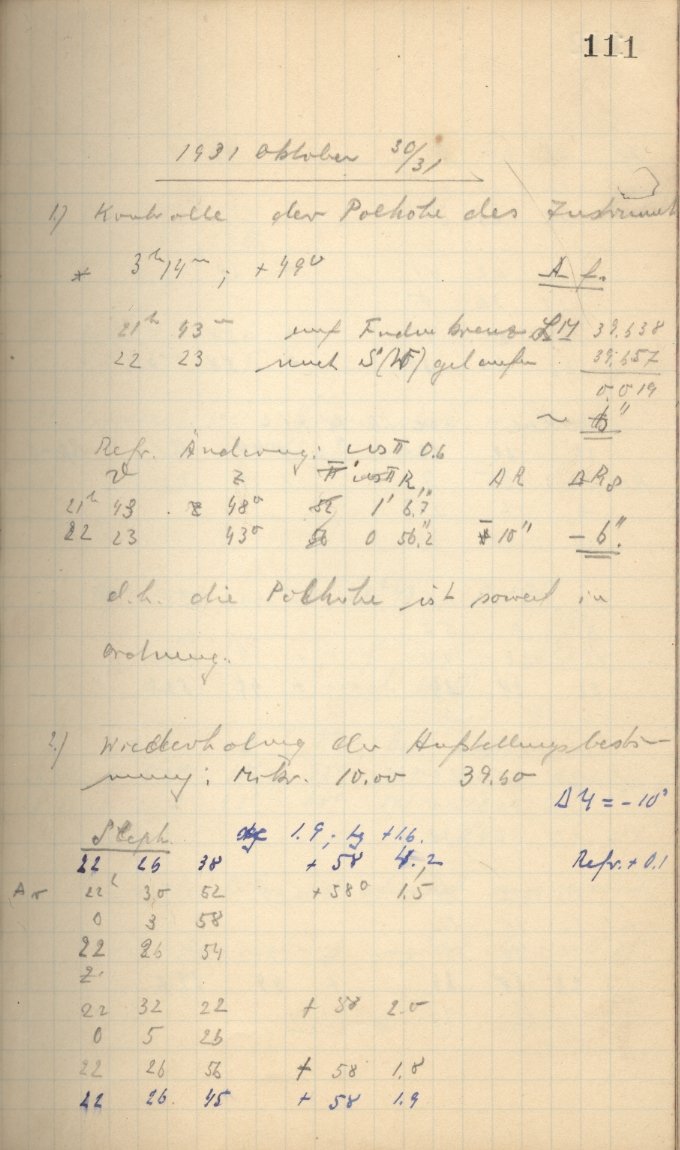 111
1931 Oktober 30/31
1) Kontrolle der Polhöhe des Instrument
* 3h 14m ; + 49° A f.
21h 43m auf Fadenkreuz 39.638
22 23 nach S (W) gelaufen 39.657
0.019
~
Refr. Änderung: cos π 0.6
z ΔR ΔRδ
21h 43 z 48° 52 1' 6".7
22 23 43° 56 0 56".2 10" - 6".
d.h. die Polhöhe ist soweit in
Ordnung.
2.) Wiederholung der Aufstellungsbestim-
mung: Mikr. 10.00 39.50
ΔY = -10'
δ Ceph. 1.9 ; +1.6.
22 26 38 + 58 4.2 Refr. + 0.1
22h 30 52 + 58° 1.5
0 3 58
22 26 54
22 32 22 + 58 2.0
0 5 26
22 26 56 + 58 1.8
22 26 45 + 58 1.9